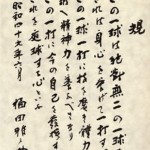 規
の一球は絶対無二の一球
れば身心を挙げて一打
の一球一打に技を磨き体力
へ精神力を養ふべき
の一打に今の自己を発揮
れを庭球する心といふ
昭和四十六年六月
福田雅